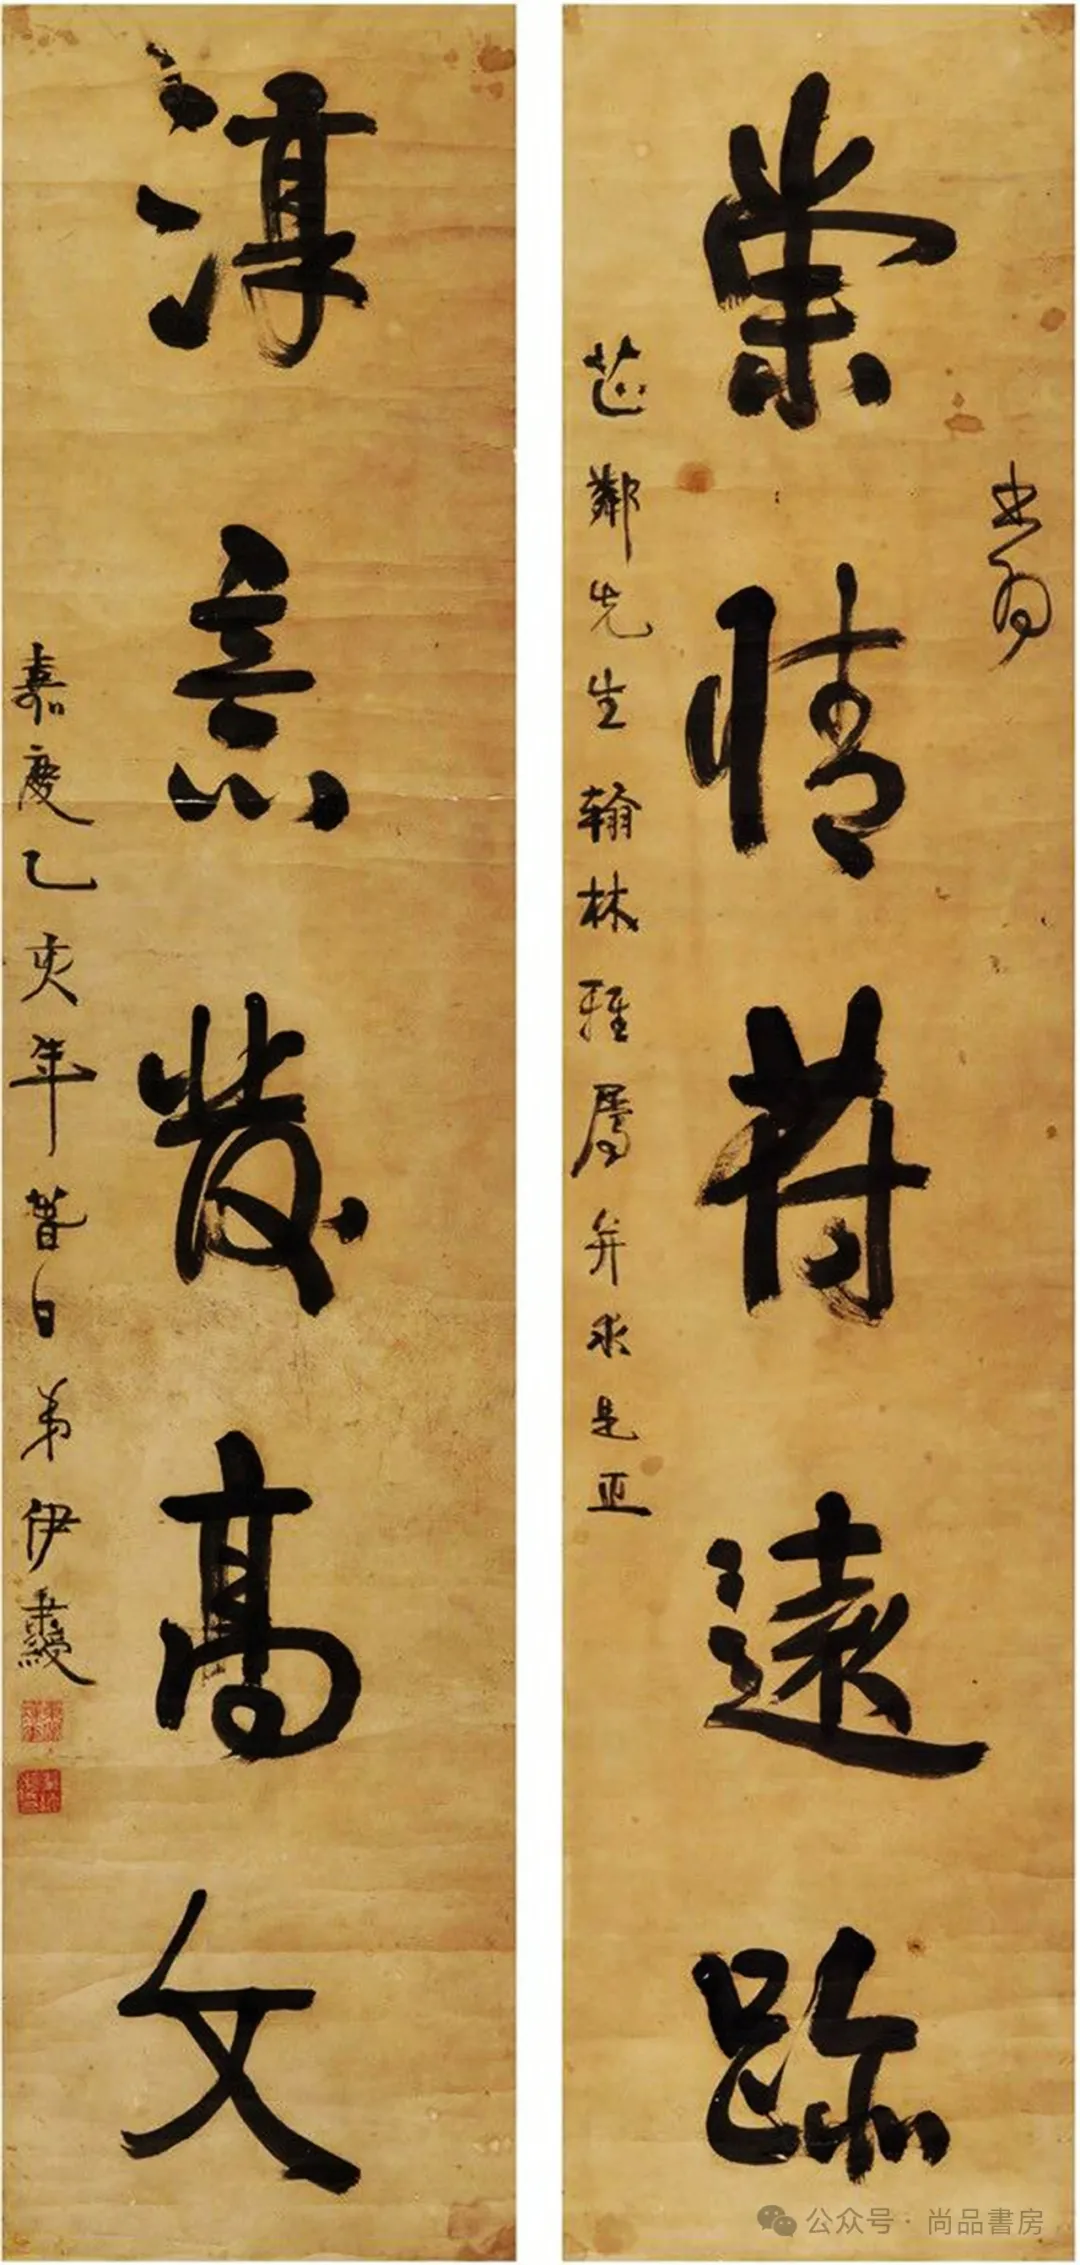 書為
崇情符遠跡
芷鄰先生翰林雅屬并求是正
淳意發高文
嘉慶乙亥年萅日弟伊秉綬
公众号·尚品書房